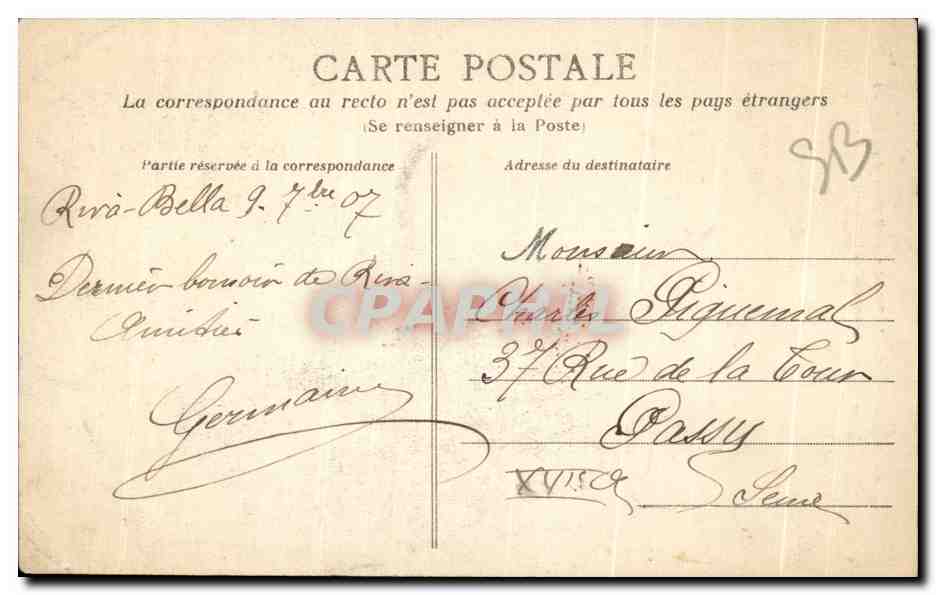 CARTE POSTALE
La correspondance au recto n'est pas acceptée par tous les pays étrangers
(Se renseigner à la Poste)
Partie réservée à la correspondance
Adresse du destinataire
GB
Riva-Bella 9. 7bre 07
Dernier bonsoir de Riva-
Amitiés
Germaine
Monsieur
Charles Piguemal
37 Rue de la Tour
Passy
XVIe
Seine
CPAPHIL